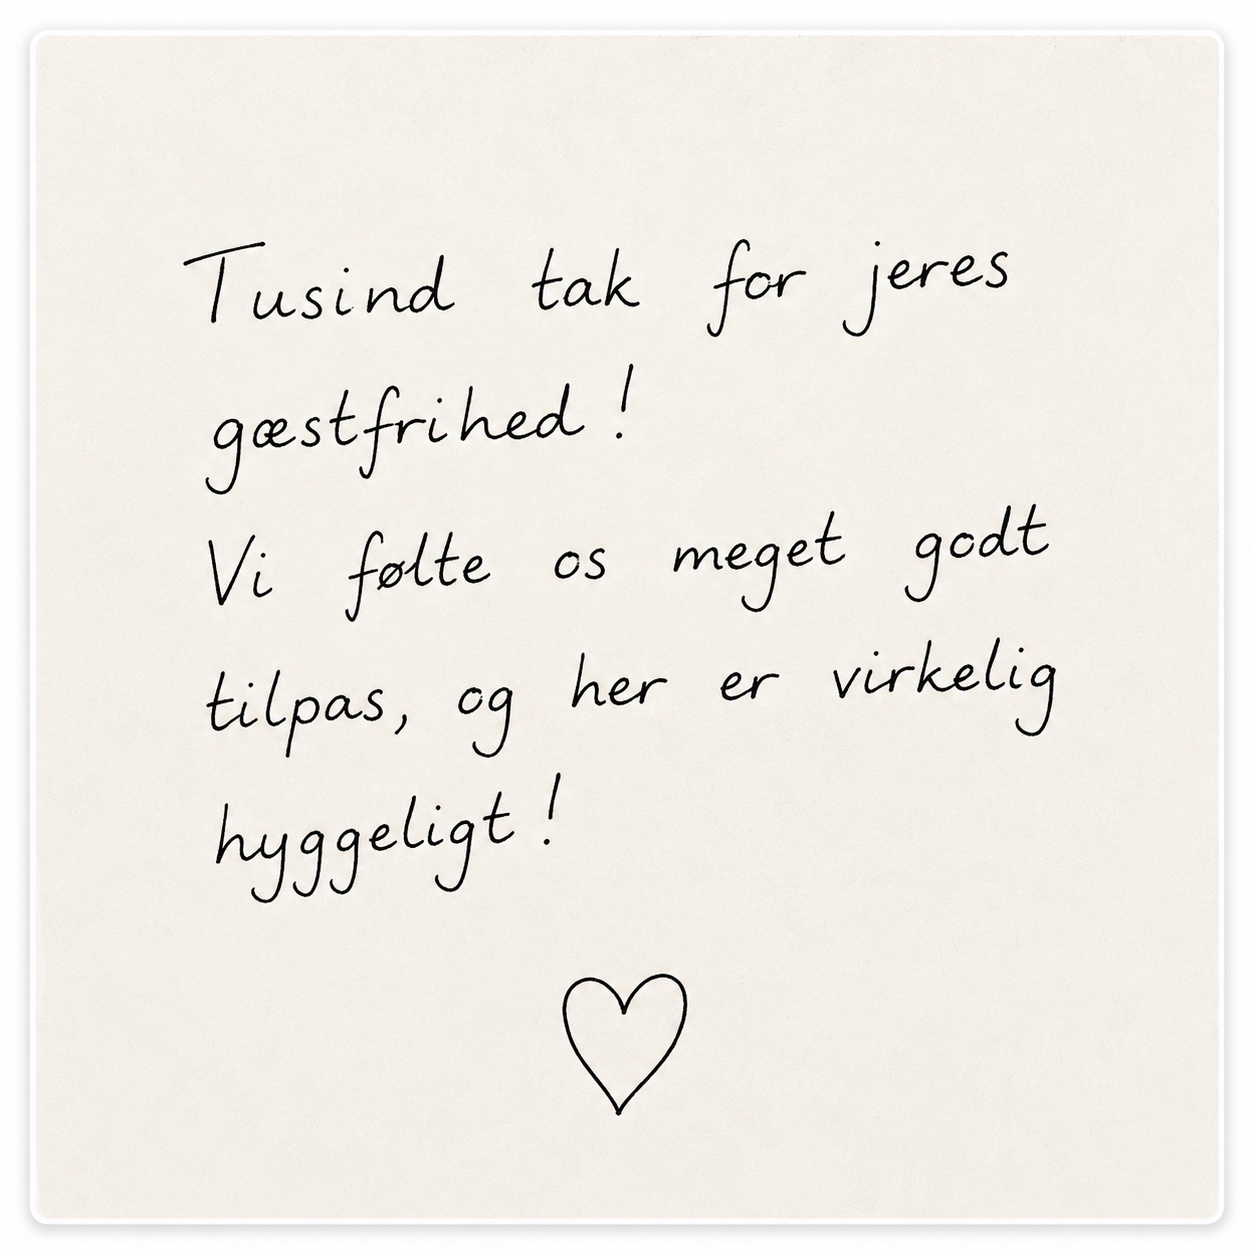 Tusind tak for jeres
gæstfrihed!
Vi følte os meget godt
tilpas, og her er virkelig
hyggeligt!